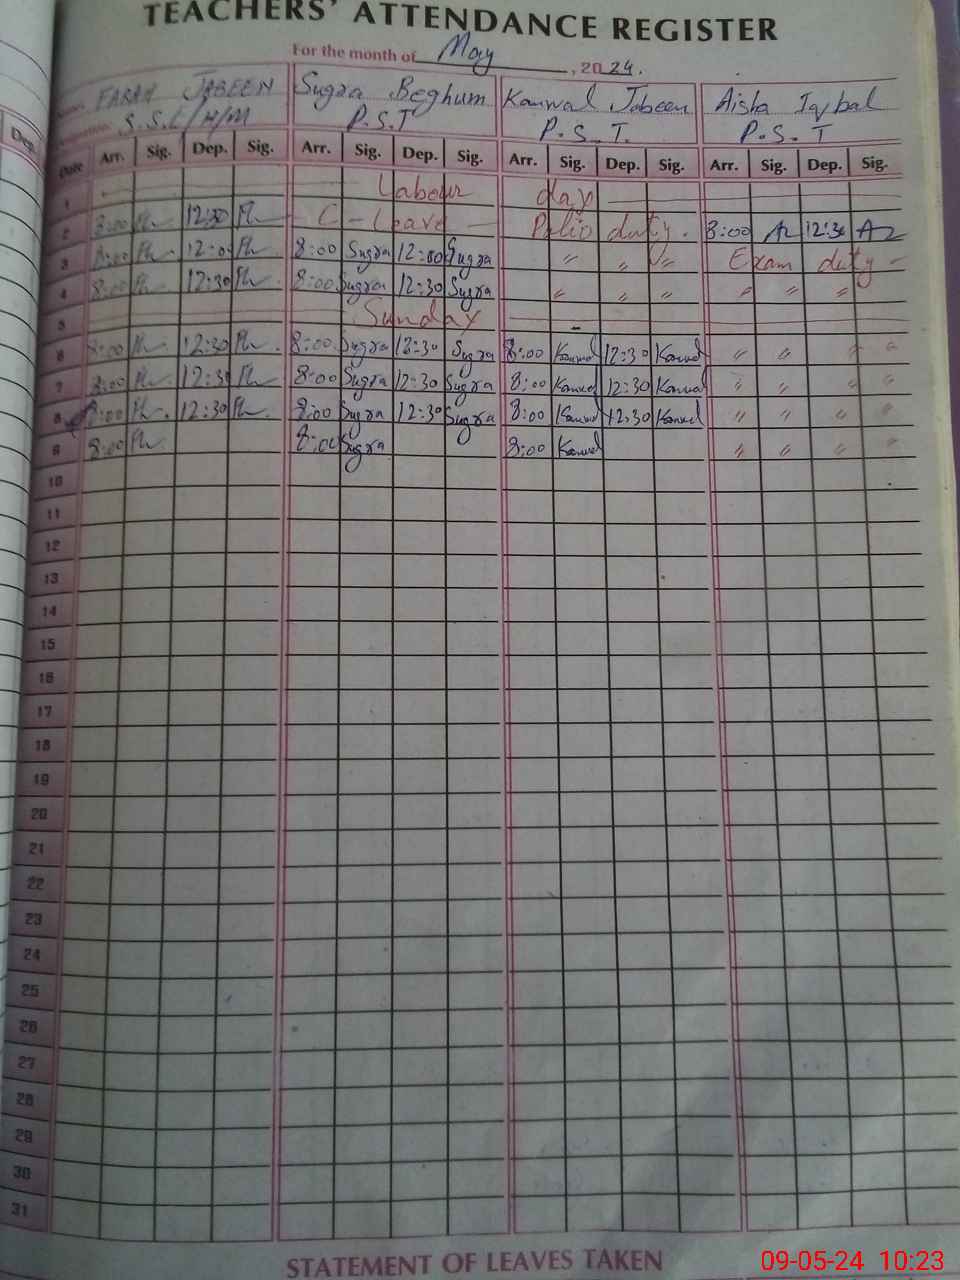 TEACHERS' ATTENDANCE REGISTER
For the month of May, 2024.
FARAH JABEEN Sugra Beghum Kanwal Jabeen Aisha Iqbal
S.S.T/H/M P.S.T P.S.T. P.S.T
Date Arr. Sig. Dep. Sig. Arr. Sig. Dep. Sig. Arr. Sig. Dep. Sig. Arr. Sig. Dep. Sig.
1 Labour day
2 8:00 12:30 C-Leave Polio duty. 8:00 12:30
3 8:00 12:00 8:00 Sugra 12:00 Sugra " " " Exam duty
4 8:00 12:30 8:00 Sugra 12:30 Sugra " " " " " " "
5 Sunday
6 8:00 12:30 8:00 Sugra 12:30 Sugra 8:00 Kanwal 12:30 Kanwal " " " "
7 8:00 12:30 8:00 Sugra 12:30 Sugra 8:00 Kanwal 12:30 Kanwal " " " "
8 8:00 12:30 8:00 Sugra 12:30 Sugra 8:00 Kanwal 12:30 Kanwal " " " "
9 8:00 8:00 Sugra 8:00 Kanwal " " " "
10
11
12
13
14
15
16
17
18
19
20
21
22
23
24
25
26
27
28
29
30
31
STATEMENT OF LEAVES TAKEN
09-05-24 10:23